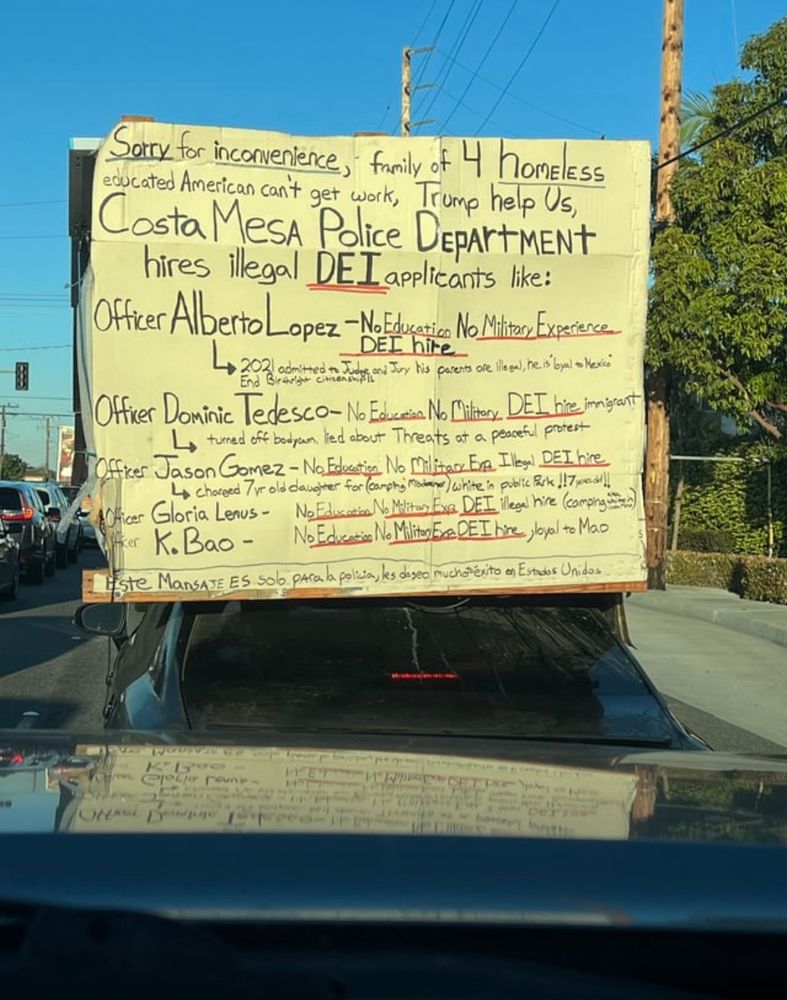 Sorry for inconvenience, family of 4 homeless
educated American can't get work, Trump help Us,
Costa Mesa Police Department
hires illegal DEI applicants like:
Officer Alberto Lopez - No Education No Military Experience
DEI hire
↳ 2021 admitted to Judge and Jury his parents are illegal, he is "loyal to Mexico"
End Birthright citizenship!!
Officer Dominic Tedesco - No Education No Military DEI hire immigrant
↳ turned off bodycam, lied about Threats at a peaceful protest
Officer Jason Gomez - No Education No Military Exp. Illegal DEI hire
↳ charged 7yr old daughter for (camping) white in public Park !!7 years old!!
Officer Gloria - No Education No Military Exp. DEI illegal hire (camping
K. Bao - No Education No Military Exp. DEI hire, loyal to Mao
Este Mansaje ES solo para la policia, les daseo mucho éxito en Estados Unidos